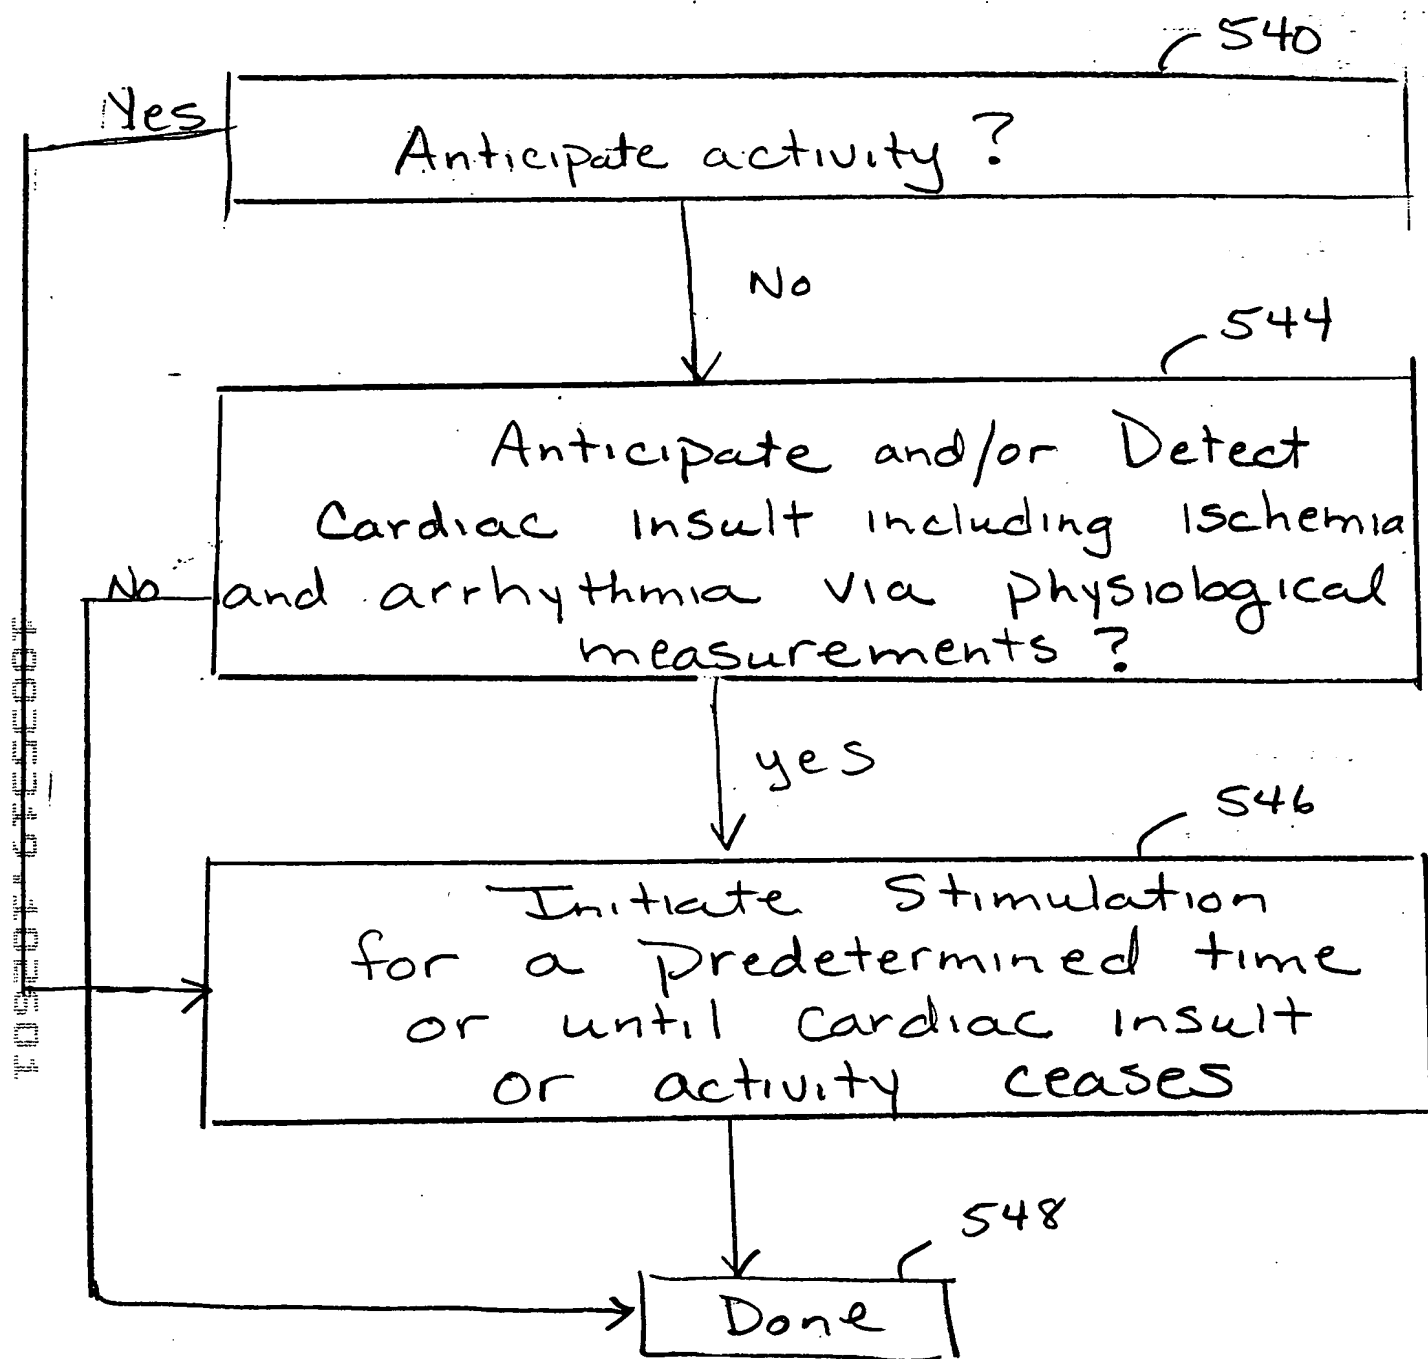 540
Yes
Anticipate activity ?
No
544
Anticipate and/or Detect
Cardiac insult including ischemia
No
and arrhythmia via physiological
measurements ?
yes
546
Initiate Stimulation
for a predetermined time
or until cardiac insult
or activity ceases
548
Done